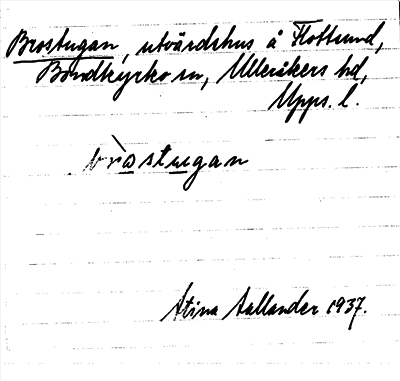 Brostugan, utvärdshus å Flottsund,
Bondkyrko sn, Ulleråkers hd,
Upps. l.
bròstugan
Stina Aallander 1937.